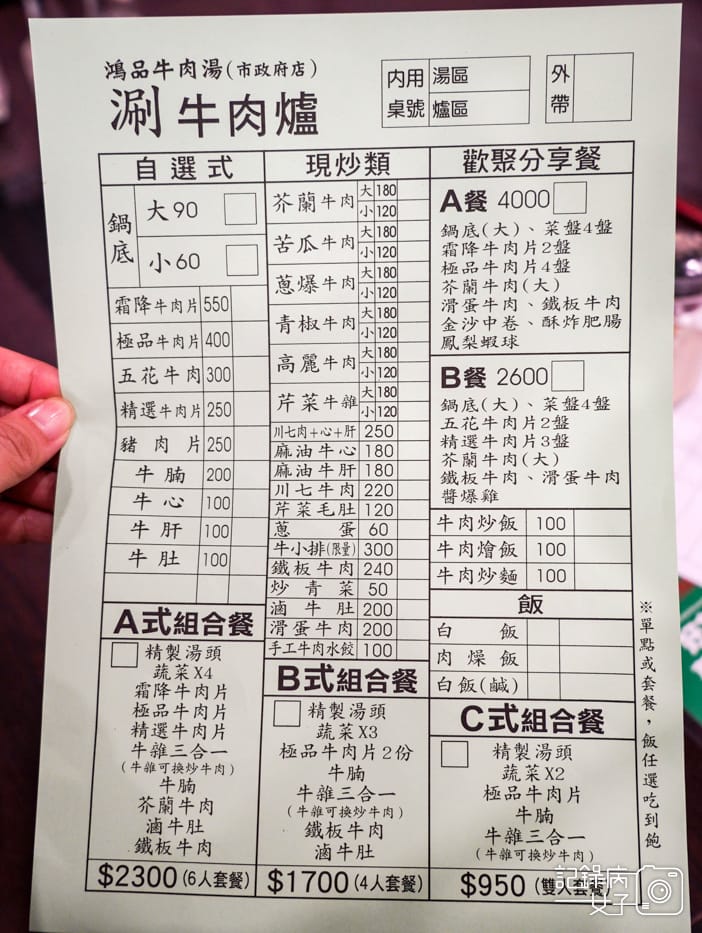 鴻品牛肉湯(市政府店)
涮牛肉爐
內用桌號
湯區
爐區
外帶
自選式
鍋底
大90
小60
霜降牛肉片 550
極品牛肉片 400
五花牛肉 300
精選牛肉片 250
豬肉片 250
牛腩 200
牛心 100
牛肝 100
牛肚 100
A式組合餐
精製湯頭
蔬菜X4
霜降牛肉片
極品牛肉片
精選牛肉片
牛雜三合一
(牛雜可換炒牛肉)
牛腩
芥蘭牛肉
滷牛肚
鐵板牛肉
$2300(6人套餐)
現炒類
芥蘭牛肉 大180
小120
苦瓜牛肉 大180
小120
蔥爆牛肉 大180
小120
青椒牛肉 大180
小120
高麗牛肉 大180
小120
芹菜牛雜 大180
小120
川七肉+心+肝 250
麻油牛心 180
麻油牛肝 180
川七牛肉 220
芹菜毛肚 120
蔥蛋 60
牛小排(限量) 300
鐵板牛肉 240
炒青菜 50
滷牛肚 200
滑蛋牛肉 200
手工牛肉水餃 100
B式組合餐
精製湯頭
蔬菜X3
極品牛肉片2份
牛腩
牛雜三合一
(牛雜可換炒牛肉)
鐵板牛肉
滷牛肚
$1700(4人套餐)
歡聚分享餐
A餐 4000
鍋底(大)、菜盤4盤
霜降牛肉片2盤
極品牛肉片4盤
芥蘭牛肉(大)
滑蛋牛肉、鐵板牛肉
金沙中卷、酥炸肥腸
鳳梨蝦球
B餐 2600
鍋底(大)、菜盤4盤
五花牛肉片2盤
精選牛肉片3盤
芥蘭牛肉(大)
鐵板牛肉、滑蛋牛肉
醬爆雞
牛肉炒飯 100
牛肉燴飯 100
牛肉炒麵 100
飯
白飯
肉燥飯
白飯(鹹)
C式組合餐
精製湯頭
蔬菜X2
極品牛肉片
牛腩
牛雜三合一
(牛雜可換炒牛肉)
$950(雙人套餐)
※單點或套餐，飯任選吃到飽
記錄內
女子